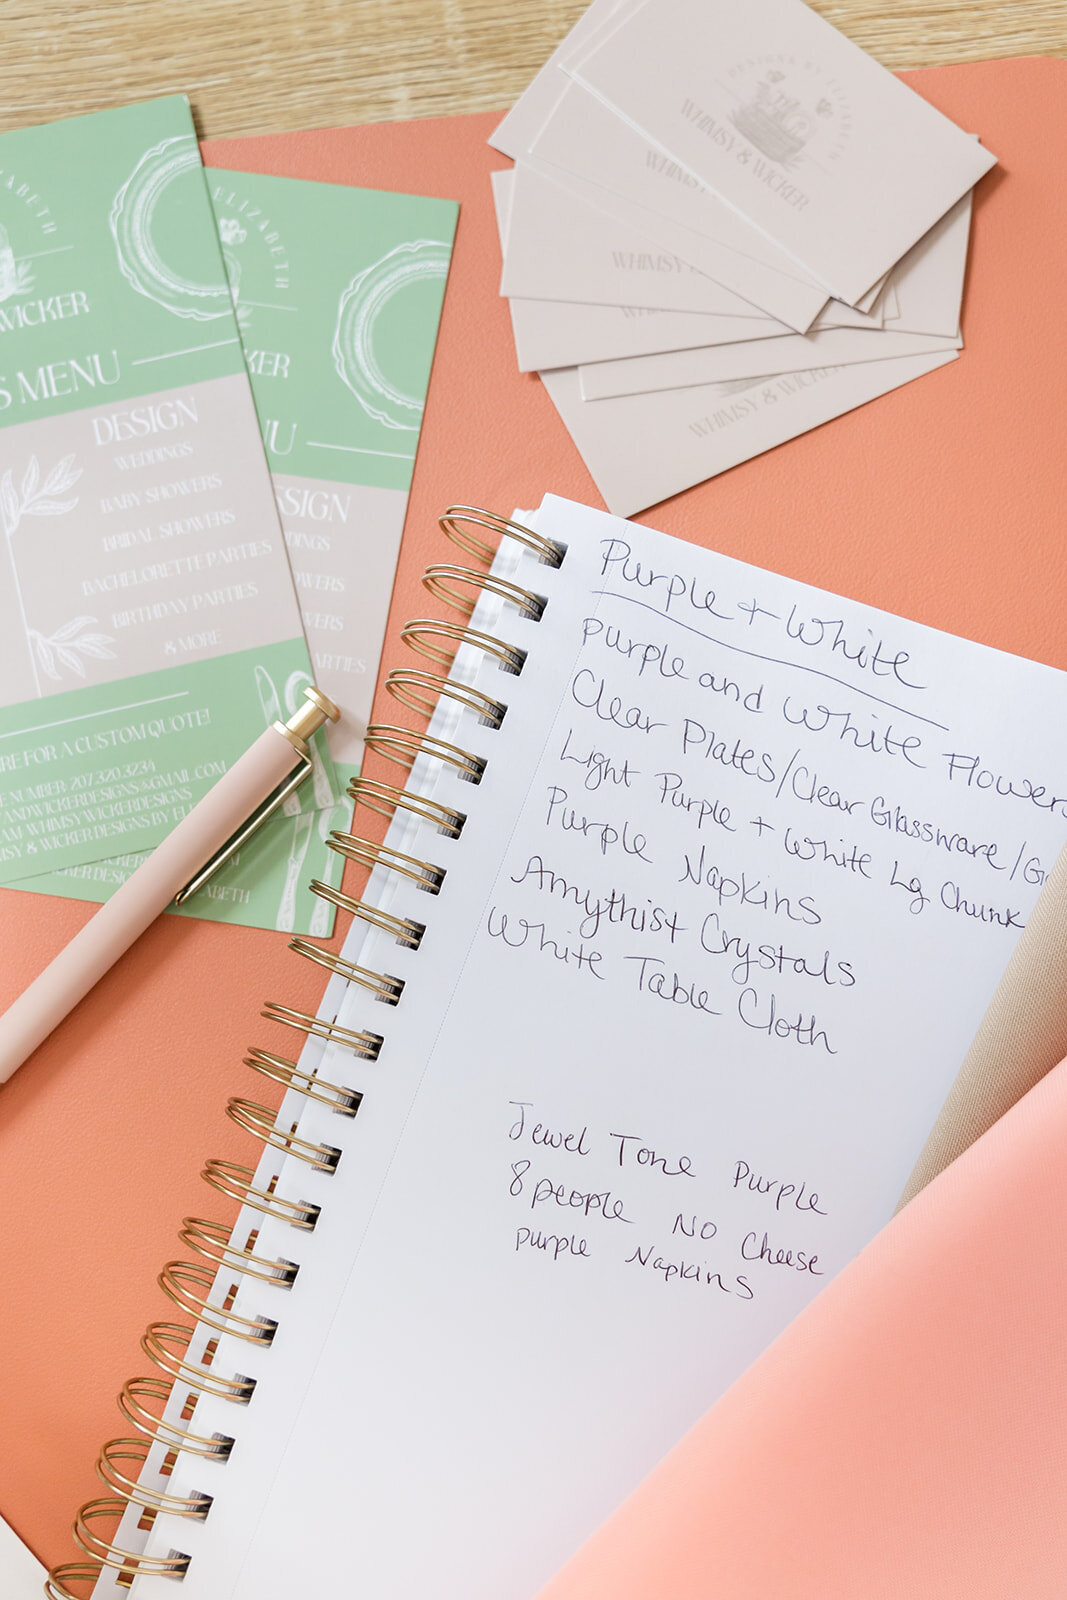 ELIZABETH
WICKER
S MENU
DESIGN
WEDDINGS
BABY SHOWERS
BRIDAL SHOWERS
BACHELORETTE PARTIES
BIRTHDAY PARTIES
& MORE
FOR A CUSTOM QUOTE!
NUMBER: 207.320.3234
ANDWICKERDESIGNS@GMAIL.COM
WHIMSYWICKERDESIGNS
& WICKER DESIGNS BY
ELIZABETH
KER
U
SIGN
DINGS
OWERS
OWERS
ARTIES
DESIGNS BY ELIZABETH
WHIMSY & WICKER
WHIMSY
WHIMSY & WICKER
Purple + White
purple and White Flowers
Clear Plates/Clear Glassware/
Light Purple + White Lg Chunk
Purple Napkins
Amythist Crystals
White Table Cloth
Jewel Tone Purple
8 people NO Cheese
purple Napkins